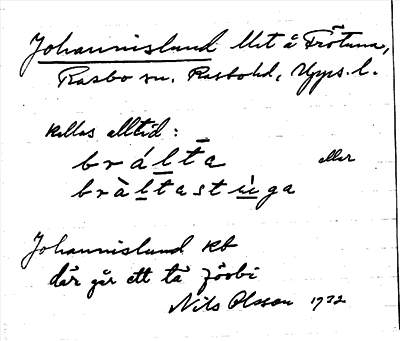 Johannislund lht å Frötuna,
Rasbo sn, Rasbohd, Upps. l.
kallas alltid:
brálta eller
bràltastùga
Johannislund kt
där går ett tå förbi
Nils Olsson 1932